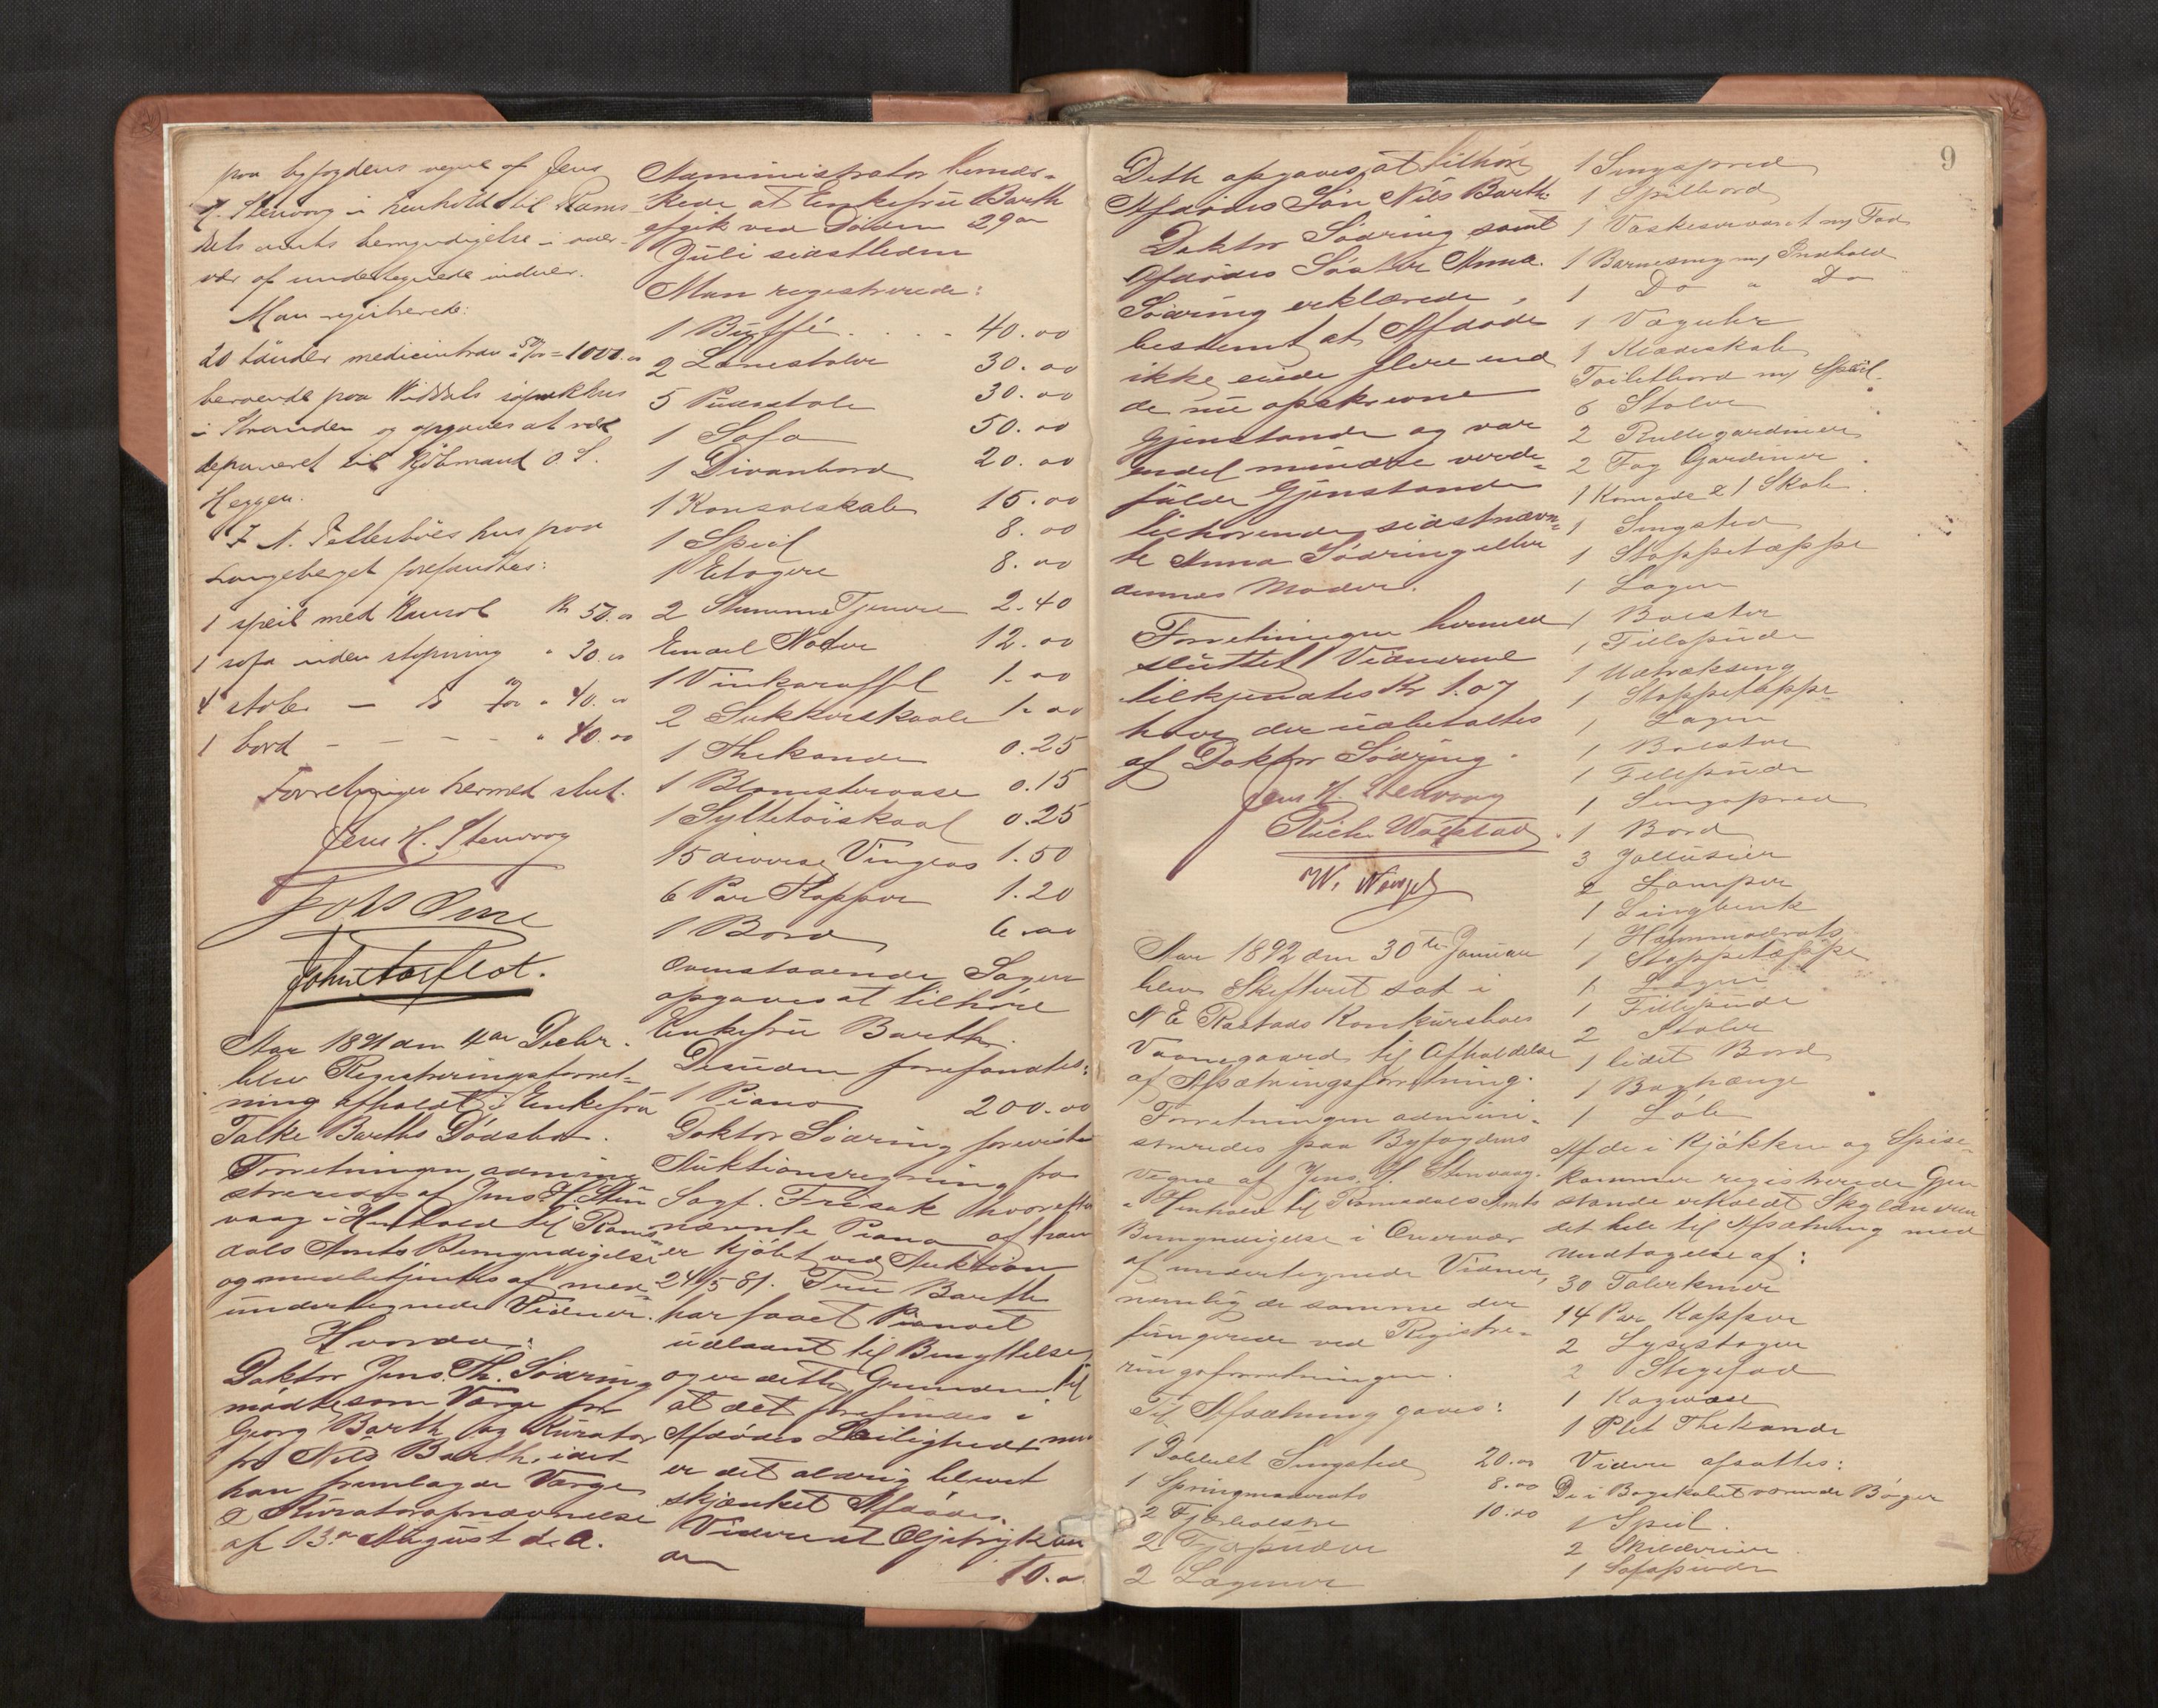 paa byfogdens vegne af Jens
H. Stenvaag i henhold til Roms-
dals amts bemyndigelse i over-
vær af undertegnede vidner.
Man registrerede:
20 tønder medicintran a 50/00 = 1000.00
beroende paa søpakhus
i Stranden og opgaves at være
deponeret til Kjøbmand O. S.
Heggen.
I A. hus paa
Langeberget forefandtes:
1 speil med Konsol Kr 50.00
1 sofa uden stopning " 30.00
4 stoler — a 10/00 " 40.00
1 bord - - - - " 40.00
Forretningen hermed slut.
Jens H. Stenvaag
Aar 1891 den 4de Decbr.
blev Registreringsforret-
ning afholdt i Enkefru
Talke Barths Dødsbo.
Forretningen admini-
streredes af Jens H. Sten
vaag i Henhold til Roms
dals Amts Bemyndigelse
og medbetjentes af med
undertegnede Vidner.
Hvorda:
Doktor Jens Th. Södring
mødte som Værge for
Georg Barth og Kurator
for Nils Barth, idet
han fremlagde Værge
& Kuratoropnævnelse
af 13de August d. A.
Administrator bemær-
kede at Enkefru Barth
afgik ved Døden 29de
Juli sidstleden
Man registrerede:
1 Büffé . . . . 40.00
2 Lænestoler 30.00
5 Pudestole 30.00
1 Sofa 50.00
1 Divanbord 20.00
1 Konsolskab 15.00
1 Speil 8.00
1 Etagere 8.00
2 Stumme Tjenere 2.40
Endel Noder 12.00
1 Vinkaraffel 1.00
2 Sukkerskaale 1.00
1 Thekande 0.25
1 Blomstervase 0.15
1 Syltetöiskaal 0.25
15 diverse Vinglas 1.50
6 Par Kopper 1.20
1 Bord 6.00
Ovenstaaende Sager
opgaves at tilhøre
Enkefru Barth.
Desuden forefandtes:
1 Piano 200.00
Doktor Södring foreviste
Auktionsregning fra
Sagf. Frisak hvorefter
nævnte Piano af ham
er kjöbt ved Auktion
24/5 81. Fru Barth
har faaet Pianoet
udlaant til Benyttelse
og er dette Grunden til
at det forefindes i
Afdødes Leilighed men
er det aldrig blevet
skjænket Afdøde.
Videre et Oljetryk
10.00
9
Dette opgaves at tilhøre
Afdødes Søn Nils Barth.
Doktor Södring samt
Afdødes Søster Anna
Södring erklærede
bestemt at Afdøde
ikke eiede flere end
de nu opskrevne
Gjenstande og var
endel mindre værde-
fulde Gjenstande
tilhørende sidstnævn-
te Anna Södring eller
dennes Moder.
Forretningen hermed
sluttet. Vidnerne
tilkjendtes Kr 1.07
hver der udbetaltes
af Doktor Södring.
Jens H. Stenvaag
Aar 1892 den 30te Januar
blev Skifteret sat i
N E Rastads Konkursboes
Vaanegaard til Afholdelse
af Afsætningsforretning.
Forretningen admini-
streredes paa Byfogdens
Vegne af Jens H. Stenvaag
i Henhold til Romsdals Amts
Bemyndigelse i Overvær
af undertegnede Vidner,
nemlig de samme der
fungerede ved Registre-
ringsforretningen.
Til Afsætning gaves:
1 Dobbelt Sengsted 20.00
1 Springmadrats 8.00
2 Fjærbolstre 10.00
2 Fjærpuder
2 Lagener
1 Sengspred
1 Spillebord
1 Vaskeservant m/ Fad
1 Barneseng m/ Indhold
1 Do " Do
1 Væguhr
1 Klædeskab
Toiletbord m/ Speil
6 Stoler
2 Rullegardiner
2 Fag Gardiner
1 Komode & 1 Skab
1 Sengsted
1 Stoppetæppe
1 Lagen
1 Bolster
1 Fillepude
1 Udtræksseng
1 Stoppetæppe
1 Lagen
1 Bolster
1 Fillepude
1 Sengspred
1 Bord
3 Jallusier
2 Lamper
1 Lingbenk
1 Halmmadrats
1 Stoppetæppe
1 Lagen
1 Fillepude
2 Stoler
1 lidet Bord
1
1
Af de i Kjøkken og Spise-
kammer registrerede Gjen
stande erholdt Skyldneren
det hele til Afsætning med
Undtagelse af:
30 Talerkener
14 Par Kopper
2 Lysestager
2 Stegefad
1 Kagevase
1 Plet Thekande
Videre afsattes:
De i Bogskabet værende Bøger
1 Speil.
2 Skilderier.
1 Sofapude